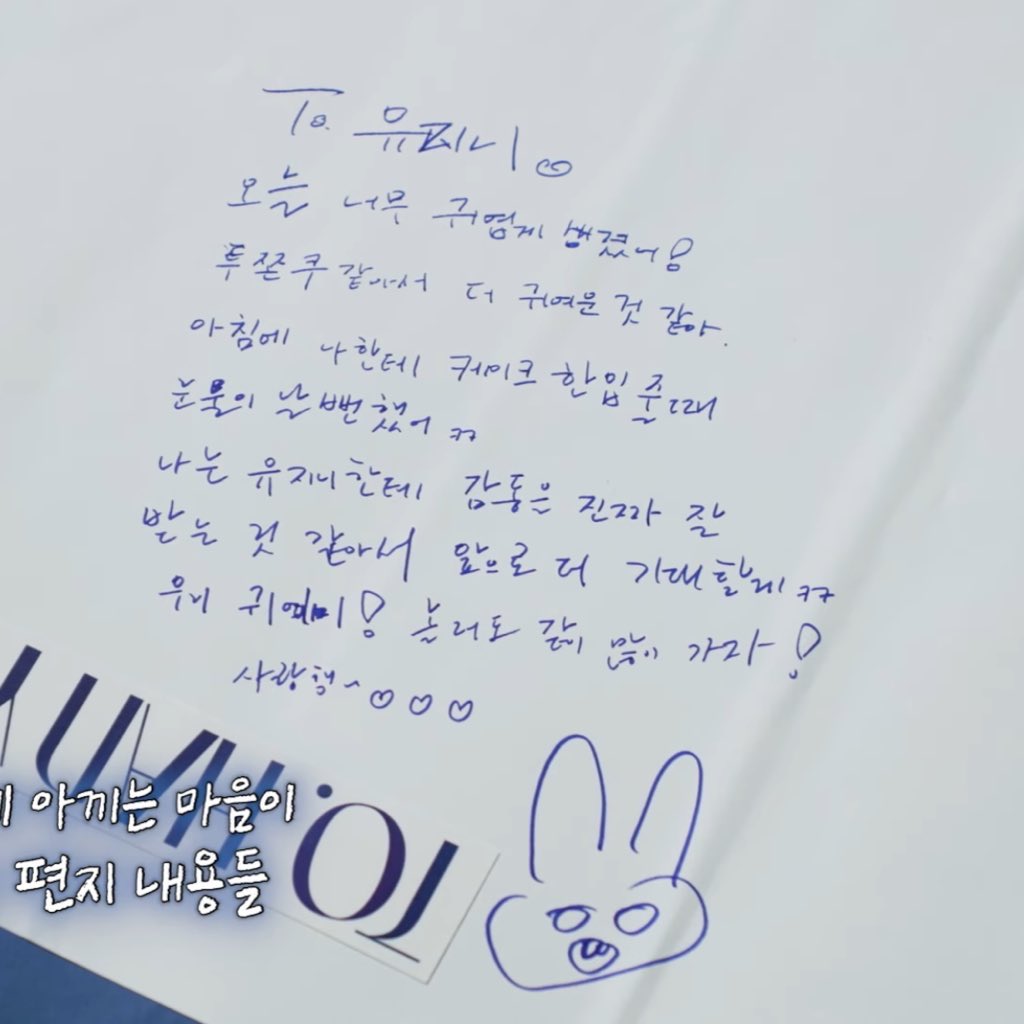 To. 유지니♡
오늘 너무 귀엽게 생겼너!
두쫀쿠 같아서 더 귀여운 것 같아.
아침에 나한테 케이크 한입 줄때
눈물이 날뻔했어 ㅋㅋ
나는 유지니한테 감동은 진짜 잘
받는 것 같아서 앞으로 더 기대할게 ㅋㅋ
우리 귀예미! 놀러도 같이 많이 가자!
사랑해~♡♡♡
아끼는 마음이
편지 내용들